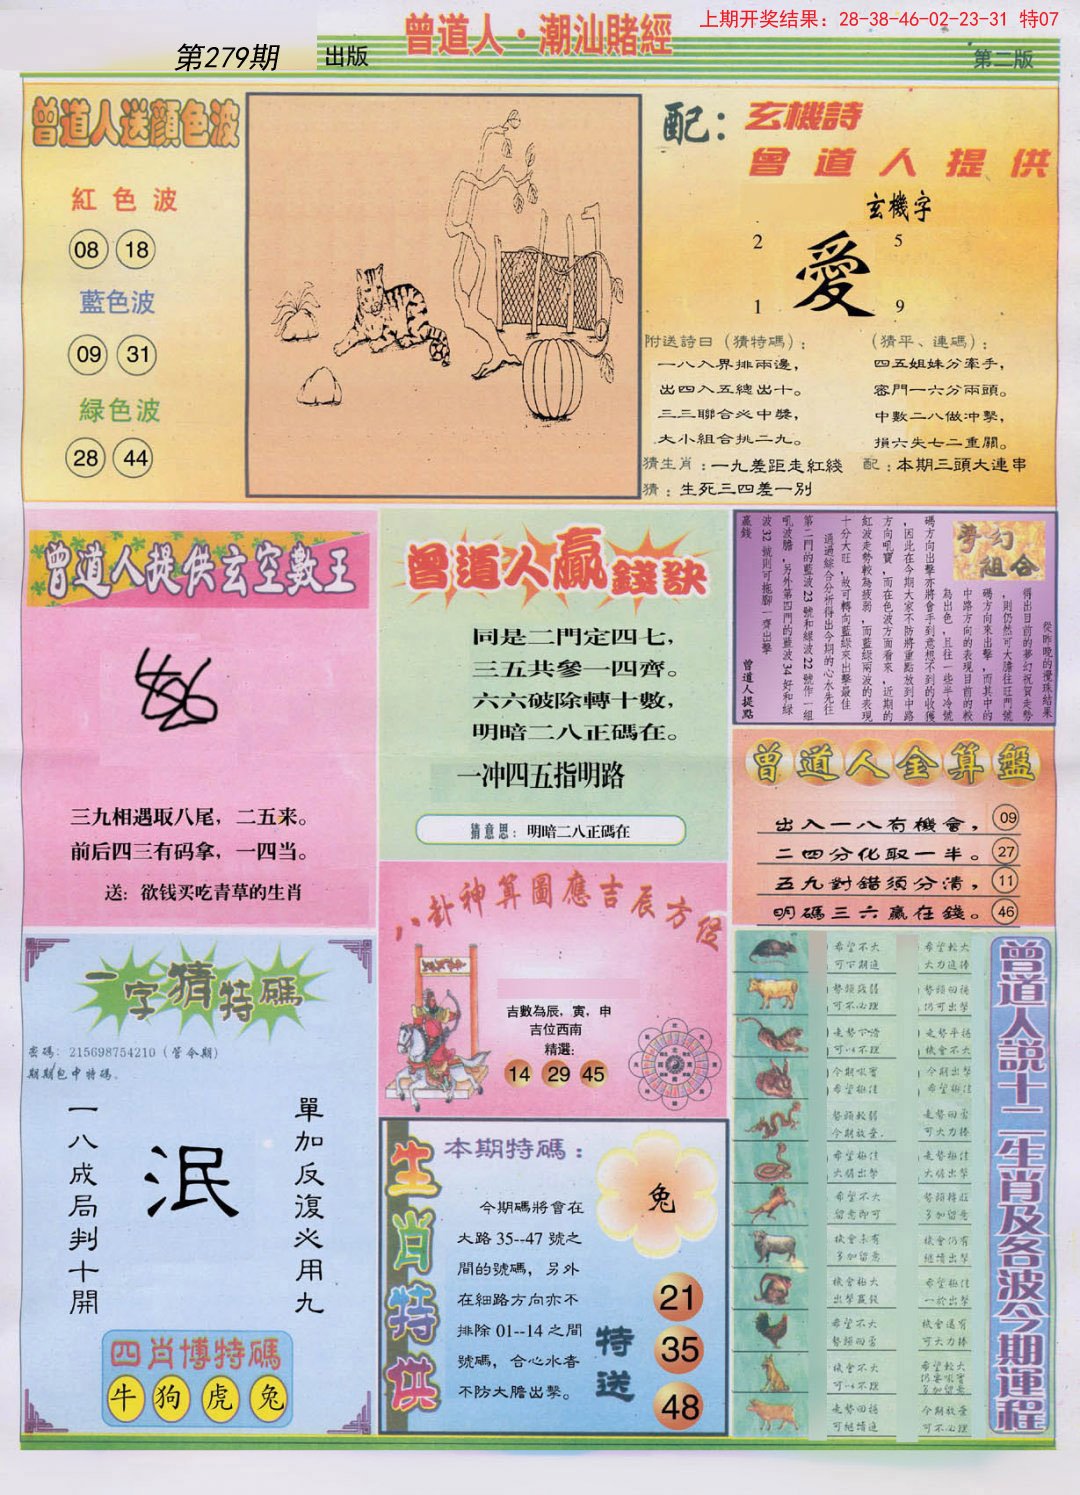 上期开奖结果：28-38-46-02-23-31 特07
曾道人·潮汕賭經
第279期
出版
第二版
曾道人送顏色波
紅色波
08 18
藍色波
09 31
緑色波
28 44
配：玄機詩
曾道人提供
玄機字
2 5
愛
1 9
附送詩曰（猜特碼）：
一八入界排兩邊，
出四入五總出十。
三三聯合必中獎，
大小組合挑二九。
（猜平、連碼）：
四五姐妹分牽手，
密門一六分兩頭。
中數二八做冲擊，
損六失七二重關。
猜生肖：一九差距走紅綫
配：本期三頭大連串
猜：生死三四差一别
曾道人提供玄空數王
三九相遇取八尾，二五来。
前后四三有码拿，一四当。
送：欲钱买吃青草的生肖
曾道人贏錢訣
同是二門定四七，
三五共參一四齊。
六六破除轉十數，
明暗二八正碼在。
一冲四五指明路
猜意思：明暗二八正碼在
夢幻組合
從昨晚的攪珠結果
得出目前的夢幻祝賀走勢
，則仍然可大膽往旺門號
碼方向來出擊，而其中的
中路方向的表現目前的較
為出色，且往一些半冷號
碼方向出擊亦將會手到意想不到的收獲
，因此在今期大家不防將重點放到中路
方向吼寶，而在色波方面看來，近期的
紅波走勢較為疲弱，而藍綠兩波的表現
十分大旺，故可轉向藍綠來出擊最佳
通過綜合分析得出今期的心水先往
第二門的藍波23號和綠波22號作一組
吼波膽，另外第四門的藍波34好和綠
波32號則可拖腳一齊出擊
贏錢
曾道人提點
曾道人金算盤
出入一八有機會， 09
二四分化取一半。 27
五九對錯須分清， 11
明碼三六贏在錢。 46
八卦神算圖應吉辰方位
吉數為辰，寅，申
吉位西南
精選：
14 29 45
一字猜特碼
密碼：215698754210（管今期）
期期包中特碼。
一八成局判十開
泯
單加反復必用九
四肖博特碼
牛 狗 虎 兔
生肖特供
本期特碼：
今期碼將會在
大路 35--47 號之
間的號碼，另外
在細路方向亦不
排除 01--14 之間
號碼，合心水者
不防大膽出擊。
兔
特送
21
35
48
曾道人説十二生肖及各波今期運程
希望不大
可下期追
希望較大
大力追捧
可不必理
仍可出擊
走勢平穩
機會不大
今期出擊
今期放棄，
走勢回勇
可大力捧
走勢極佳
大膽出擊
希望不大
留意即可
機會未有
多加留意
機會仍有
繼續出擊
機會極大
出擊贏錢
希望極佳
一於出擊
希望不大
勢頭回勇
機會還有
可大力捧
機會不大
希望較大
多加留意
走勢回穩
可繼續追
今期放棄
可不必理